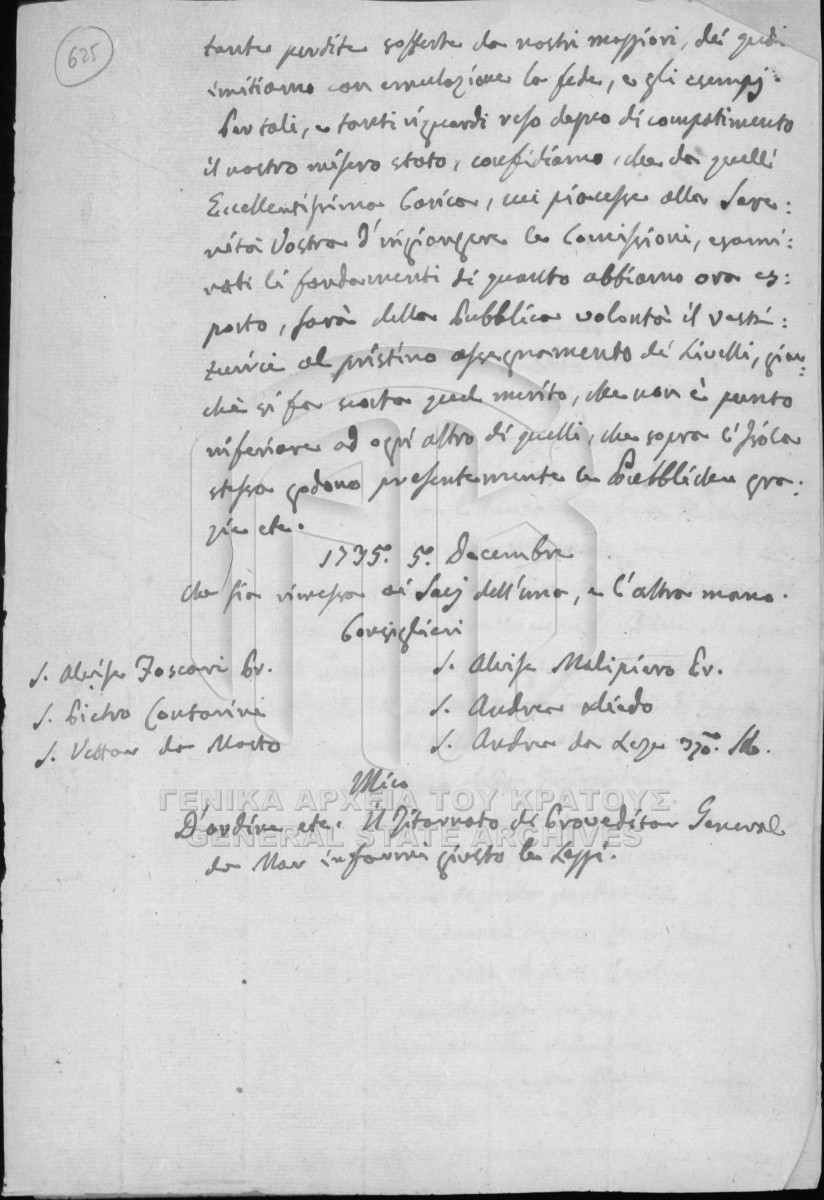 625
tante perdite sofferte da nostri maggiori, dei quali
imitiamo con emulazione la fede, e gli esempj.
Per tali, e tanti riguardi reso degno di compatimento
il nostro misero stato, confidiamo, che da quelli
Eccellentissima Carica, cui piacesse alla Sere:
nità Vostra d'ingiongere le Comissioni, esami:
nati li fondamenti di quanto abbiamo ora es:
posto, sarà della Pubblica volontà il resti:
tuirci al pristino assegnamento de Livelli, giac:
chè si fa scorta quel merito, che non è punto
inferiore ad ogni altro di quelli, che sopra l'Isola
stessa godono presentemente le Pubbliche gra:
zie etc.
1735. 5. Decembre
che sia rimessa ai Savj dell'una, e l'altra mano.
Consiglieri
S. Alvise Foscari Pr.
S. Pietro Contarini
S. Vettor da Mosto
S. Alvise Malipiero Pr.
S. Andrea
S. Andrea da Leze
D'ordine etc. Il Ritornato di Proveditor General
da Mar informi giusto le Leggi.
ΓΕΝΙΚΑ ΑΡΧΕΙΑ ΤΟΥ ΚΡΑΤΟΥΣ
GENERAL STATE ARCHIVES